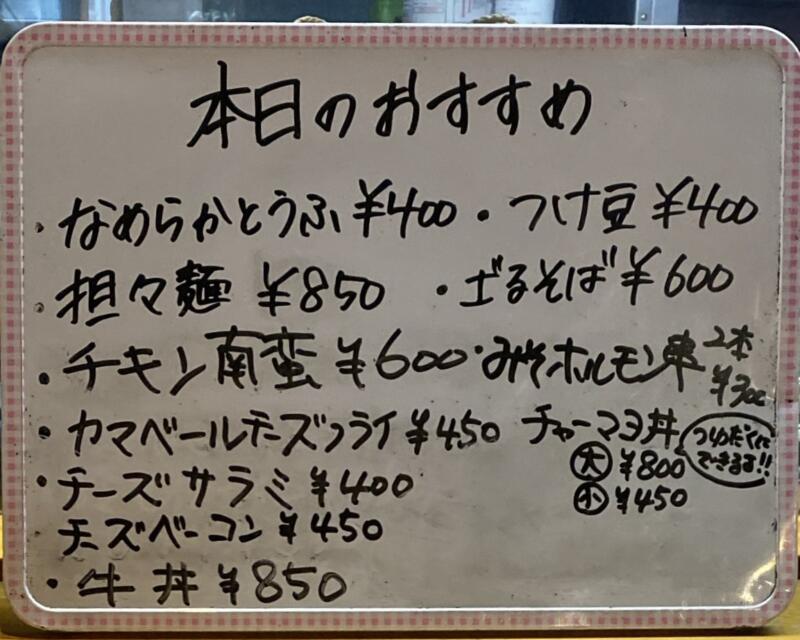 本日のおすすめ
・なめらかとうふ ¥400 ・つけ豆 ¥400
・担々麺 ¥850 ・ざるそば ¥600
・チキン南蛮 ¥600 ・みそホルモン串 2本 ¥300
・カマベールチーズフライ ¥450 チャーマヨ丼 つゆだくにできます!!
大 ¥800
・チーズサラミ ¥400 小 ¥450
チーズベーコン ¥450
・牛丼 ¥850